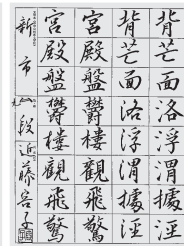 背芒面洛浮渭據涇
背芒面洛浮渭據涇
宮殿盤鬱樓觀飛驚
宮殿盤鬱樓觀飛驚
新市
段 近藤